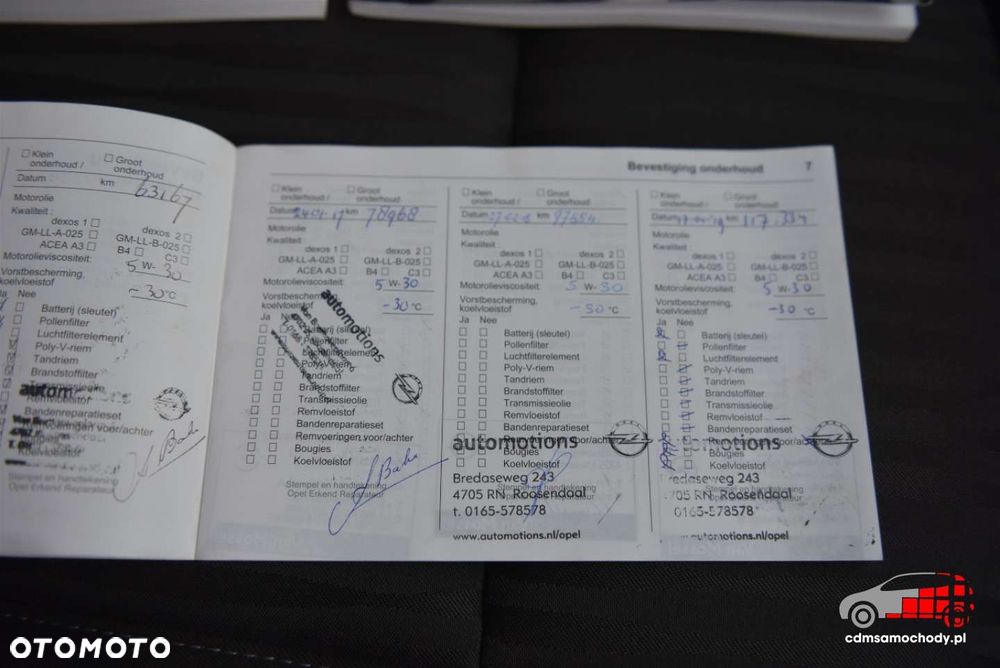 Klein onderhoud /
Groot onderhoud
Datum : km 63167
Motorolie
Kwaliteit :
dexos 1 dexos 2
GM-LL-A-025 GM-LL-B-025
ACEA A3 B4 C3
Motorolieviscositeit: 5 W-30
Vorstbescherming, koelvloeistof -30 °C
Ja Nee
Batterij (sleutel)
Pollenfilter
Luchtfilterelement
Poly-V-riem
Tandriem
Brandstoffilter
Transmissieolie
Remvloeistof
Bandenreparatieset
Remvoeringen voor/achter
Bougies
Koelvloeistof
autom
Bevestiging onderhoud 7
Klein onderhoud /
Groot onderhoud
Datum km 78968
Motorolie
Kwaliteit :
dexos 1 dexos 2
GM-LL-A-025 GM-LL-B-025
ACEA A3 B4 C3
Motorolieviscositeit: 5 W-30
Vorstbescherming, koelvloeistof -30 °C
Ja Nee
Batterij (sleutel)
Pollenfilter
Luchtfilterelement
Poly-V-riem
Tandriem
Brandstoffilter
Transmissieolie
Remvloeistof
Bandenreparatieset
Remvoeringen voor/achter
Bougies
Koelvloeistof
automotions
Stempel en handtekening
Opel Erkend Reparateur
Klein onderhoud /
Groot onderhoud
Datum km
Motorolie
Kwaliteit :
dexos 1 dexos 2
GM-LL-A-025 GM-LL-B-025
ACEA A3 B4 C3
Motorolieviscositeit: 5 W-30
Vorstbescherming, koelvloeistof -30 °C
Ja Nee
Batterij (sleutel)
Pollenfilter
Luchtfilterelement
Poly-V-riem
Tandriem
Brandstoffilter
Transmissieolie
Remvloeistof
Bandenreparatieset
Remvoeringen voor/achter
Bougies
Koelvloeistof
automotions
Bredaseweg 243
4705 RN Roosendaal
t. 0165-578578
www.automotions.nl/opel
Klein onderhoud /
Groot onderhoud
Datum km 117.334
Motorolie
Kwaliteit :
dexos 1 dexos 2
GM-LL-A-025 GM-LL-B-025
ACEA A3 B4 C3
Motorolieviscositeit: 5 W-30
Vorstbescherming, koelvloeistof -30 °C
Ja Nee
Batterij (sleutel)
Pollenfilter
Luchtfilterelement
Poly-V-riem
Tandriem
Brandstoffilter
Transmissieolie
Remvloeistof
Bandenreparatieset
Bougies
Koelvloeistof
motions
redaseweg 243
705 RN Roosendaal
0165-578578
www.automotions.nl/opel
OTOMOTO
cdmsamochody.pl